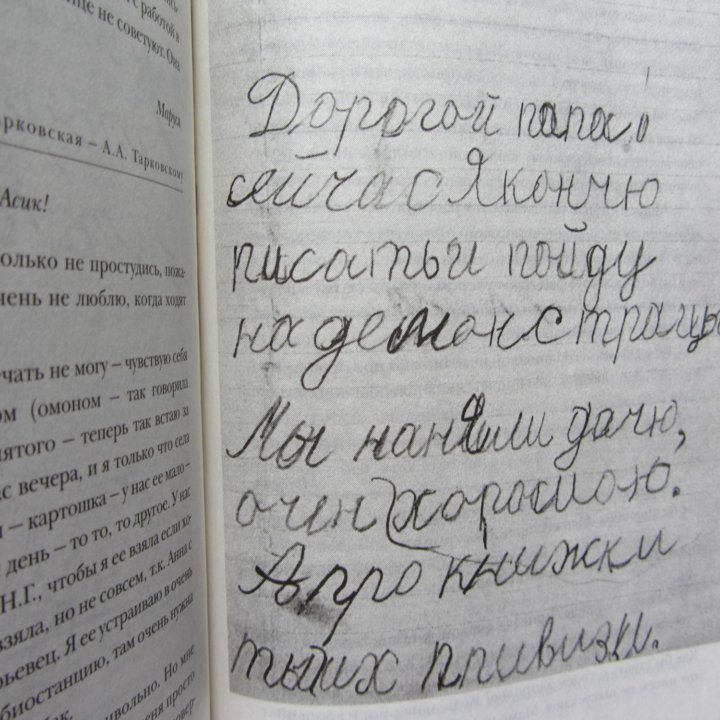 с работой в
ще не советуют. Она
Маруся
орковская – А.А. Тарковском
Асик!
олько не простудись, пожа-
чень не люблю, когда ходят
ечать не могу – чувствую себя
ом (омоном – так говорила
пятого – теперь так встаю за
с вечера, и я только что села
и – картошка – у нас ее мало –
день – то то, то другое. У нас
Н.Г., чтобы я ее взяла если хо-
взяла, но не совсем, т.к. Анна с
рьевец. Я ее устраиваю в очень
биостанцию, там очень нужна
ивольно. Но мне
еня просто
Дорогой папа!
сейчас я кончю
писать и пойду
на демонстрацы
Мы наняли дачю,
очен хорошою.
А про книжки
ты их привизи.